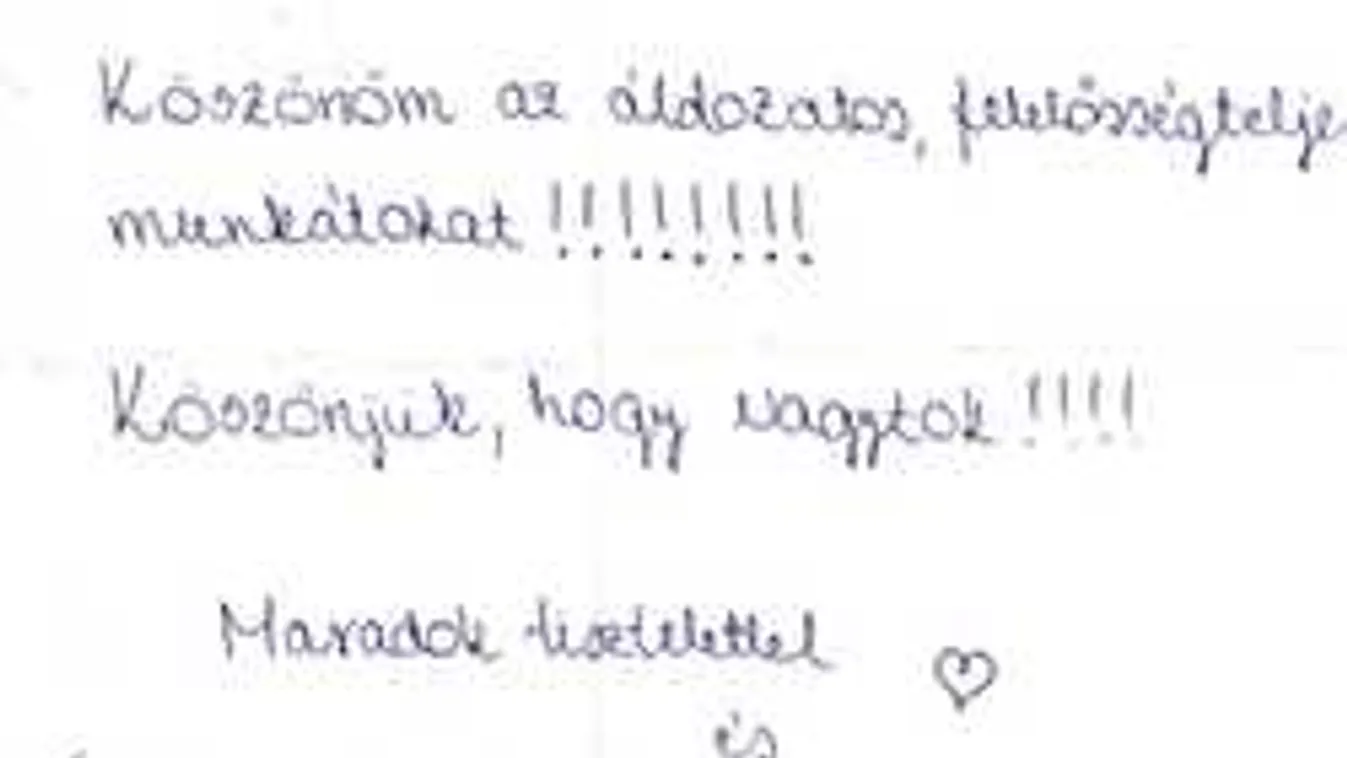 Köszönöm az áldozatos, felelősségtelje
munkátokat !!!!!!!!
Köszönjük, hogy vagytok !!!!
Maradok tisztelettel ♡
és